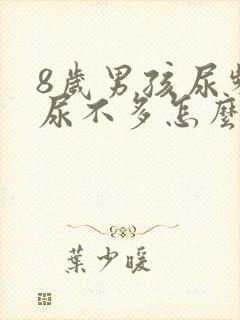 8歲男孩尿
尿不多怎麼
葉少暖